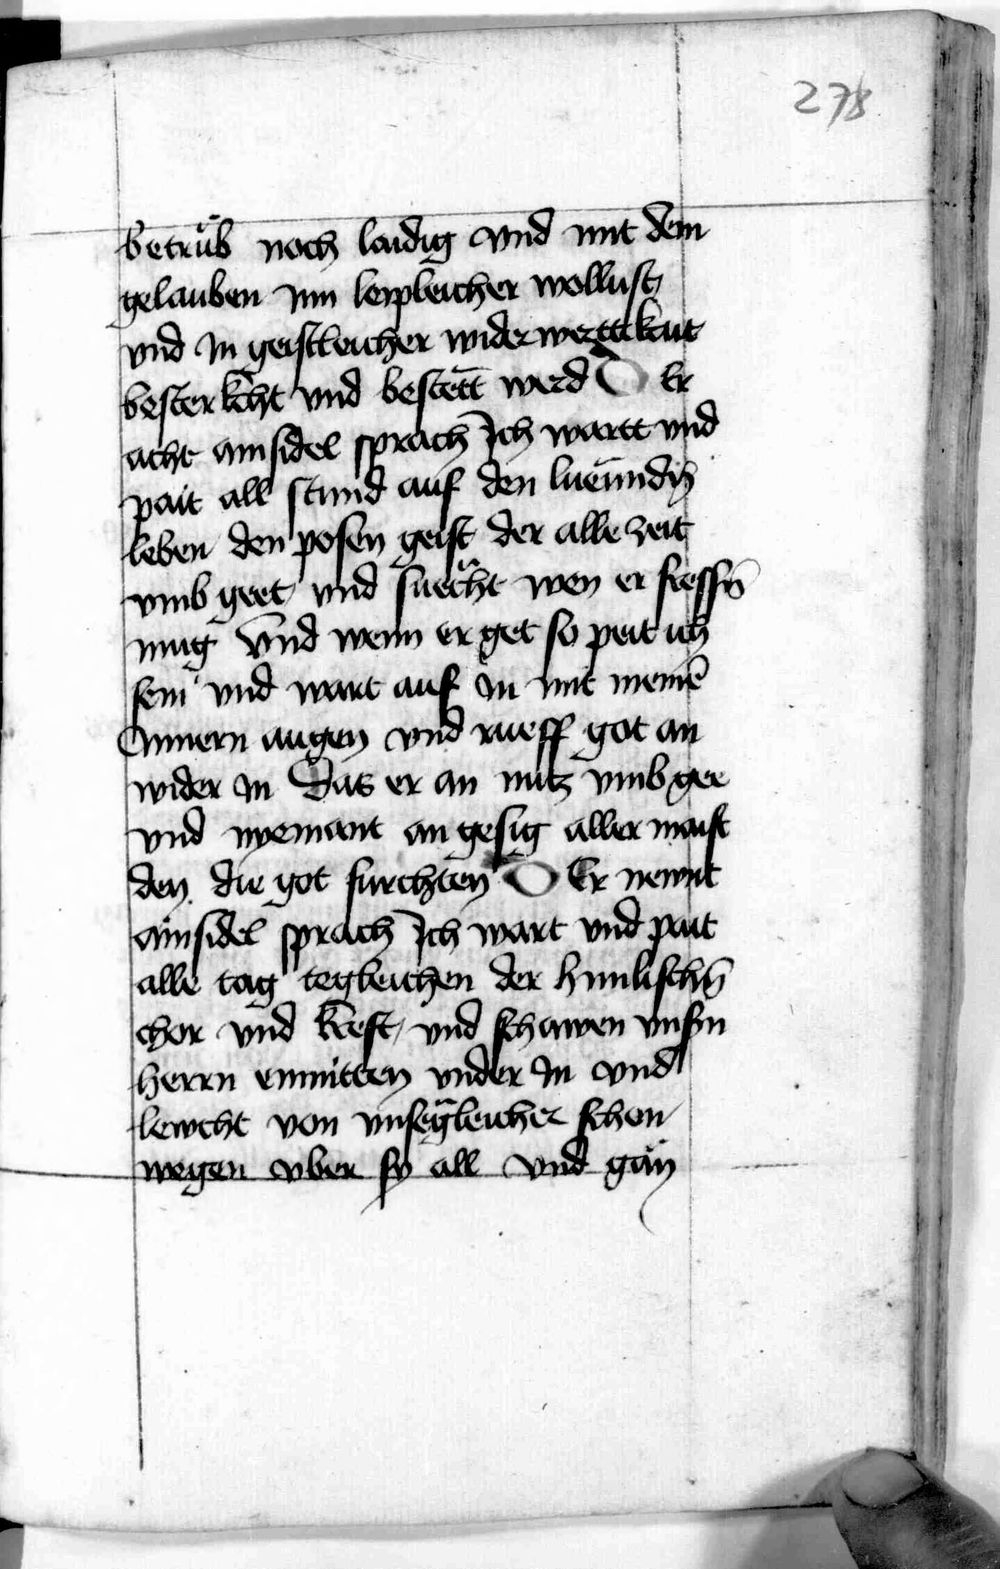 278
betrüb noch laidig vnd mit dem
gelauben Inn leipleicher wollust
vnd In geistleicher widerwerttikait
besterkcht vnd bestett̄ werd D Er
acht ainsidel sprach Ich wartt vnd
pait all stund auf den lueūndn̄
leben den posen geist der alle zeit
vmb geet vnd suecht wen er fressn̄
mug Vnd wenn er get so peit ich
sein vnd wart auf In mit meinē
Innern augen vnd rueff got an
wider In Das er an nutz vmb gee
vnd nyemant an gesig aller maist
den die got furchten D Er newnt
ainsidel sprach Ich wart vnd pait
alle tag tegleichen der himlischn̄
chor vnd krēft vnd schawen vnsm
herrn enmitten vnder In vnd
lewcht von vnseḡleicher schon
wegen vber sy all vnd gäy